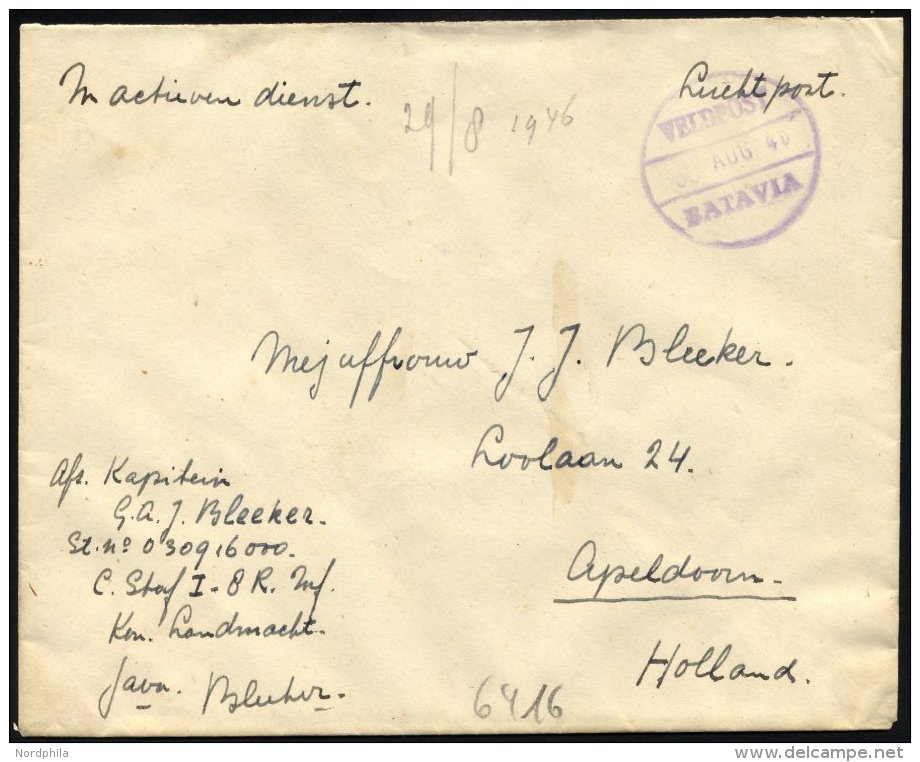 In actieven dienst.
Luchtpost.
29/8 1946
VELDPOST
30 AUG 46
BATAVIA
Mejuffrouw J. J. Bleeker.
Loolaan 24.
Apeldoorn.
Holland.
Afz. Kapitein
G.A.J. Bleeker.
St. no 030916000.
C. Staf I-8 R. Inf.
Kon. Landmacht.
Java. Bleeker.
6416
Nordphila
www.delcampe.net